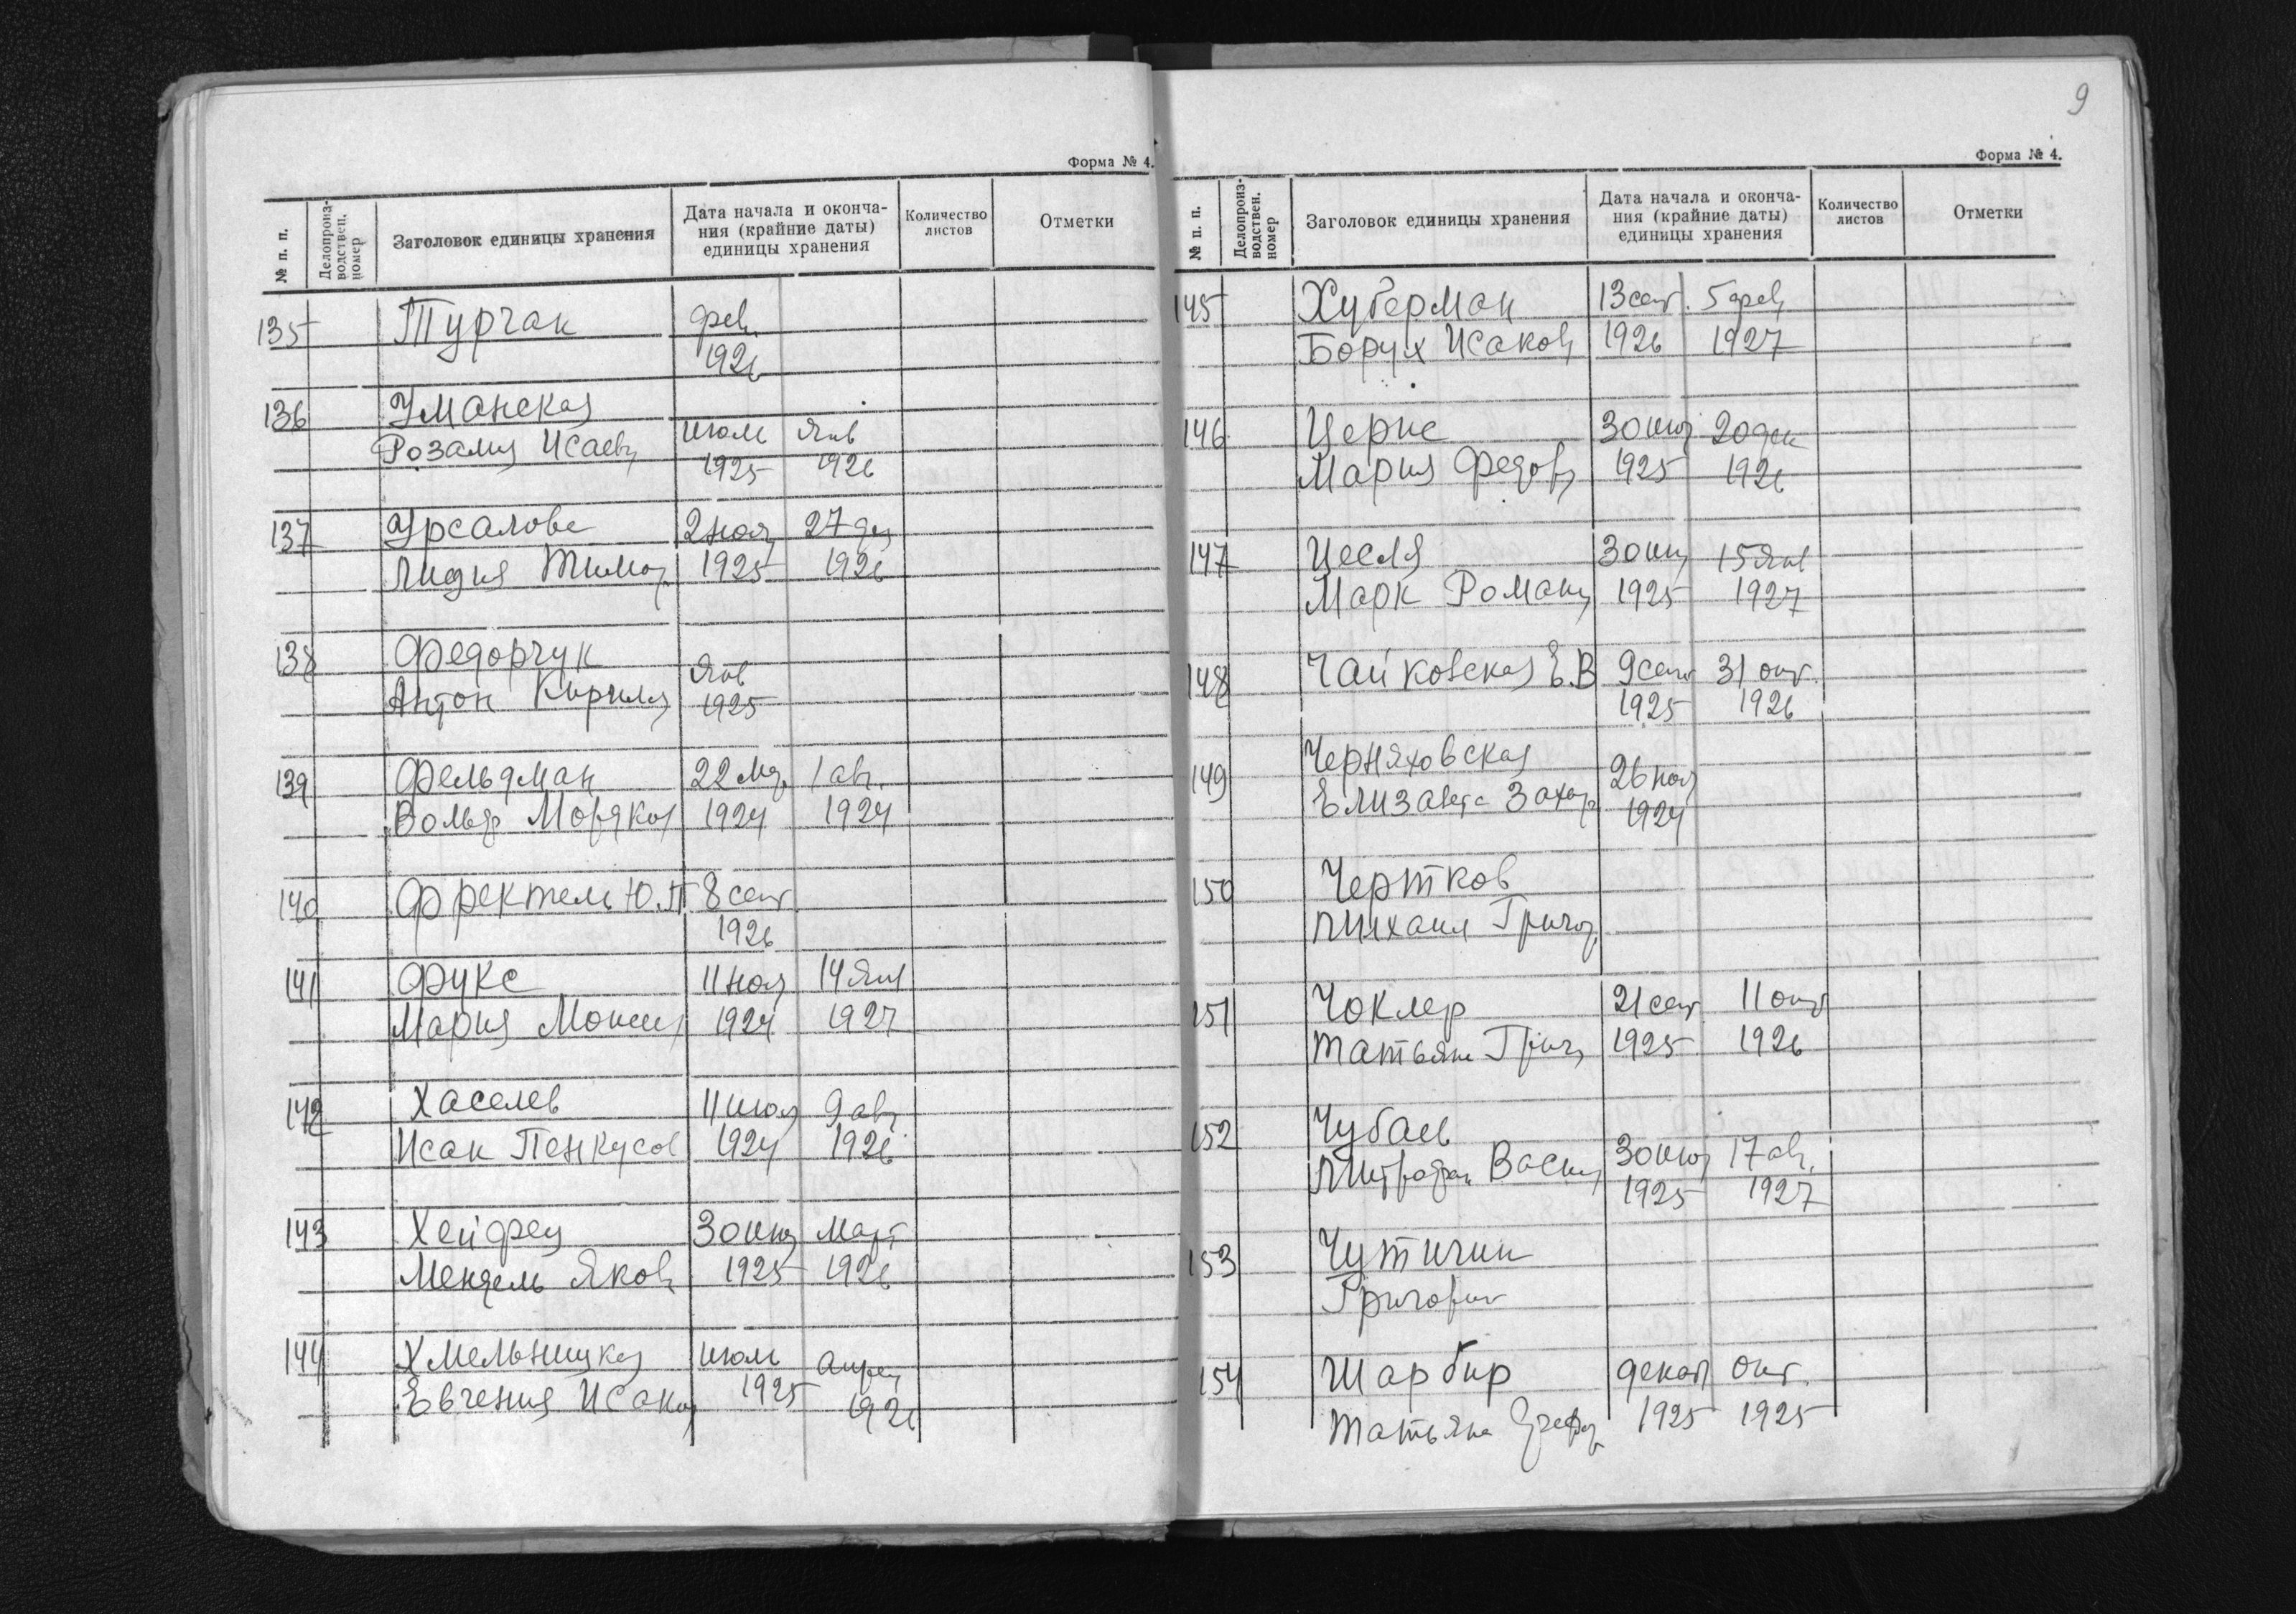 Форма № 4.
№ п. п.
Делопроиз-
водствен.
номер
Заголовок единицы хранения
Дата начала и оконча-
ния (крайние даты)
единицы хранения
Количество
листов
Отметки
135 Турчак фев.
1926
136 Уманская
Розалия Исаев июль янв
1925 1926
137 Урсалова 2 ноя 27 дек
Лидия Тимоф. 1925 1926
138 Федорчук янв
Антон Кирил 1925
139 Фельдман 22 мая 1 ав.
Вольф Мордков 1924 1924
140 Фректель Ю.П. 8 сент.
1926
141 Фукс 11 ноя 14 янв
Мария Моисе 1924 1927
142 Хаселев 11 июля 9 авг
Исак Пенкусов 1924 1926
143 Хейфец 30 июн март
Мендель Яков 1925 1926
144 Хмельницкая июль апрел
Евгения Исаков 1925 1926
9
Форма № 4.
№ п. п.
Делопроиз-
водствен.
номер
Заголовок единицы хранения
Дата начала и оконча-
ния (крайние даты)
единицы хранения
Количество
листов
Отметки
145 Хуберман 13 сент. 5 фев
Борух Исаков 1926 1927
146 Церне 30 июн 20 дек
Мария Федов 1925 1926
147 Цесля 30 июн 15 янв
Марк Роман 1925 1927
148 Чайковская Е.В 9 сент 31 окт.
1925 1926
149 Черняховская 26 ноя
Елизавета Захар 1924
150 Чертков
Михаил Григор
151 Чоклер 21 сент 11 окт
Татьяна Григ 1925 1926
152 Чубаев 30 июн 17 ав.
Митрофан Васил 1925 1927
153 Чутичин
Григорий
154 Шарбир декаб окт.
Татьяна 1925 1925